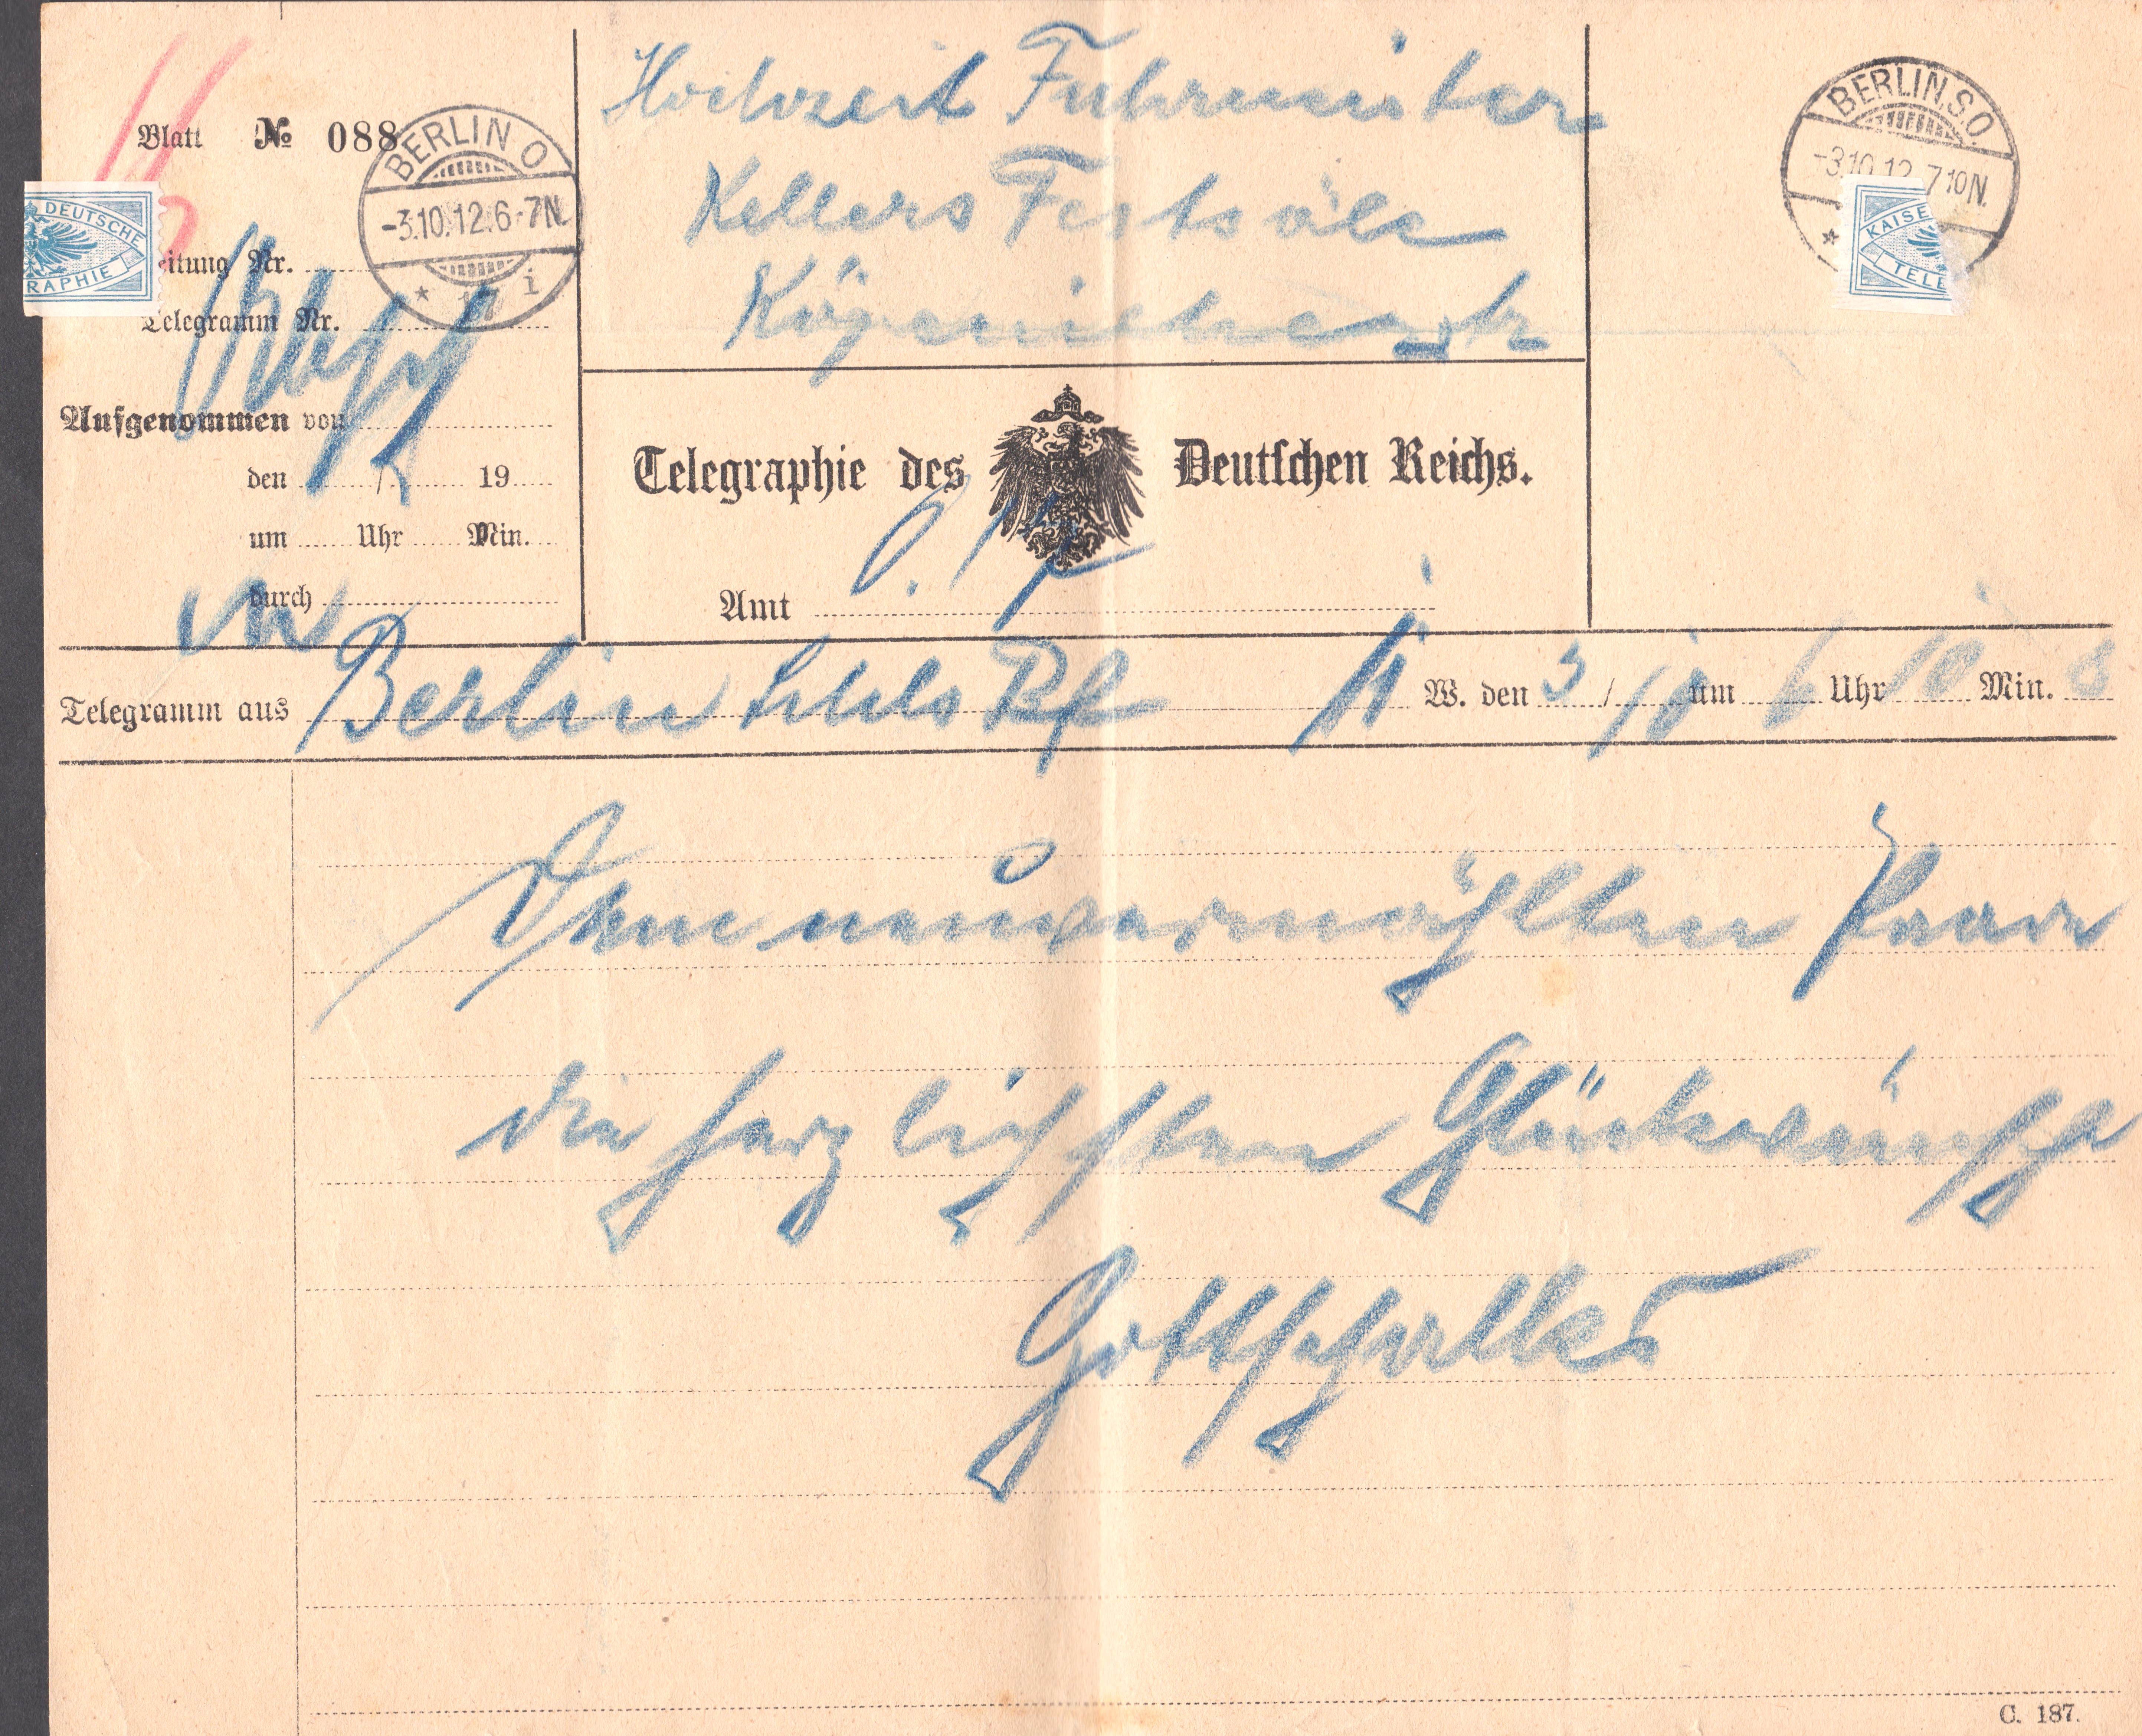 Blatt № 088
BERLIN O
-3.10.12.6-7N.
* 17 i
Hochzeit Fuhrmeister
Kellers Festsäle
Köpenickerstr
BERLIN.S.O.
-3.10.12. 7 10N.
*
DEUTSCHE
RAPHIE
KAISE
TELE
eitung Nr.
Telegramm Nr.
Aufgenommen von
den / 19
um Uhr Min.
durch
Telegraphie des Deutschen Reichs.
Amt O. 17
Telegramm aus Berlin Schls Bf 11 W. den 3 / 10 um 6 Uhr 10 Min. S
Dem neuvermählten Paare
die herzlichsten Glückwünsche
Gottschalks
C. 187.